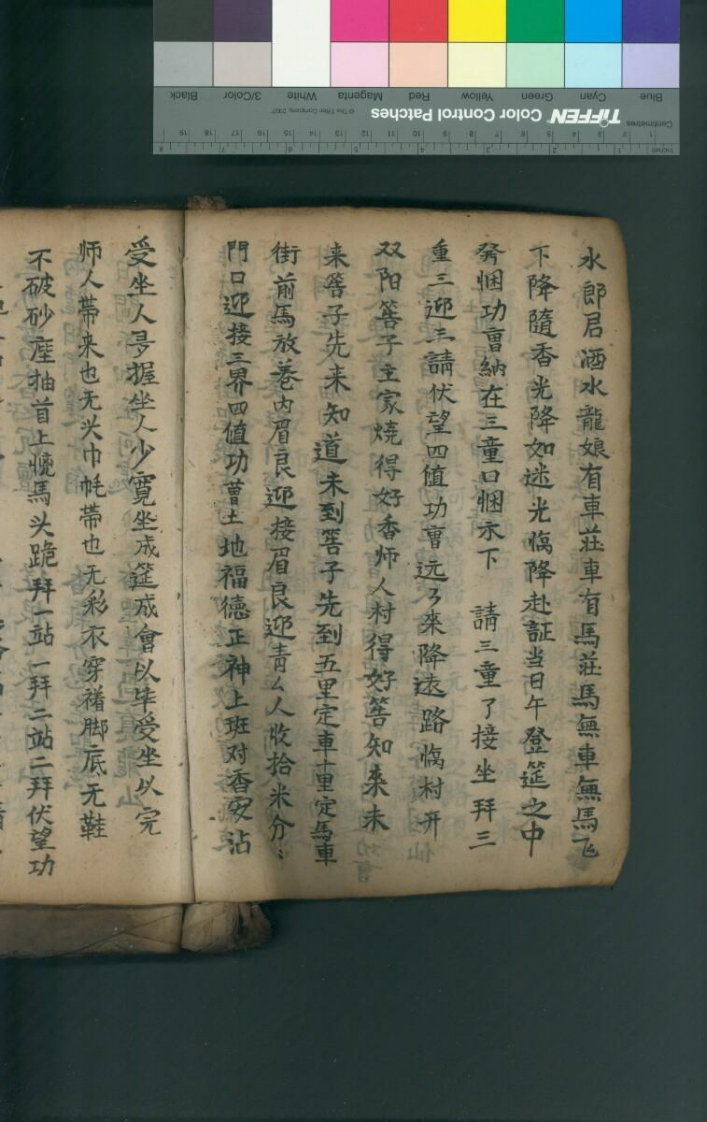 水郎君洒水龍娘有車莊車有馬莊馬無車無馬飞
下降隨香光降如迷光临降赴証当日午登筵之中
発悃功曹納在三童口悃永下 請三重了接坐拜三
重三迎三請伏望四值功曹远々来降远路临村开
双阳筶子主家燒得好香师人村得好筶知来未
来筶子先来知道未到筶子先到五里定車十里定馬車
街前馬放巷内眉良迎接眉良迎青么人收拾米分
門口迎接三界四值功曹土地福德正神上班对香案沾
受坐人握坐人少坐成筵成會以毕受坐以完
师人帶来也无头巾帐帶也无彩衣穿禇脚底无鞋
不破砂座抽首上馬头跪拜一站一拜二站二拜伏望功
Blue
Cyan
Green
Yellow
Red
Magenta
White
3/Color
Black
Centimetres
TIFFEN Color Control Patches
© The Tiffen Company, 2007